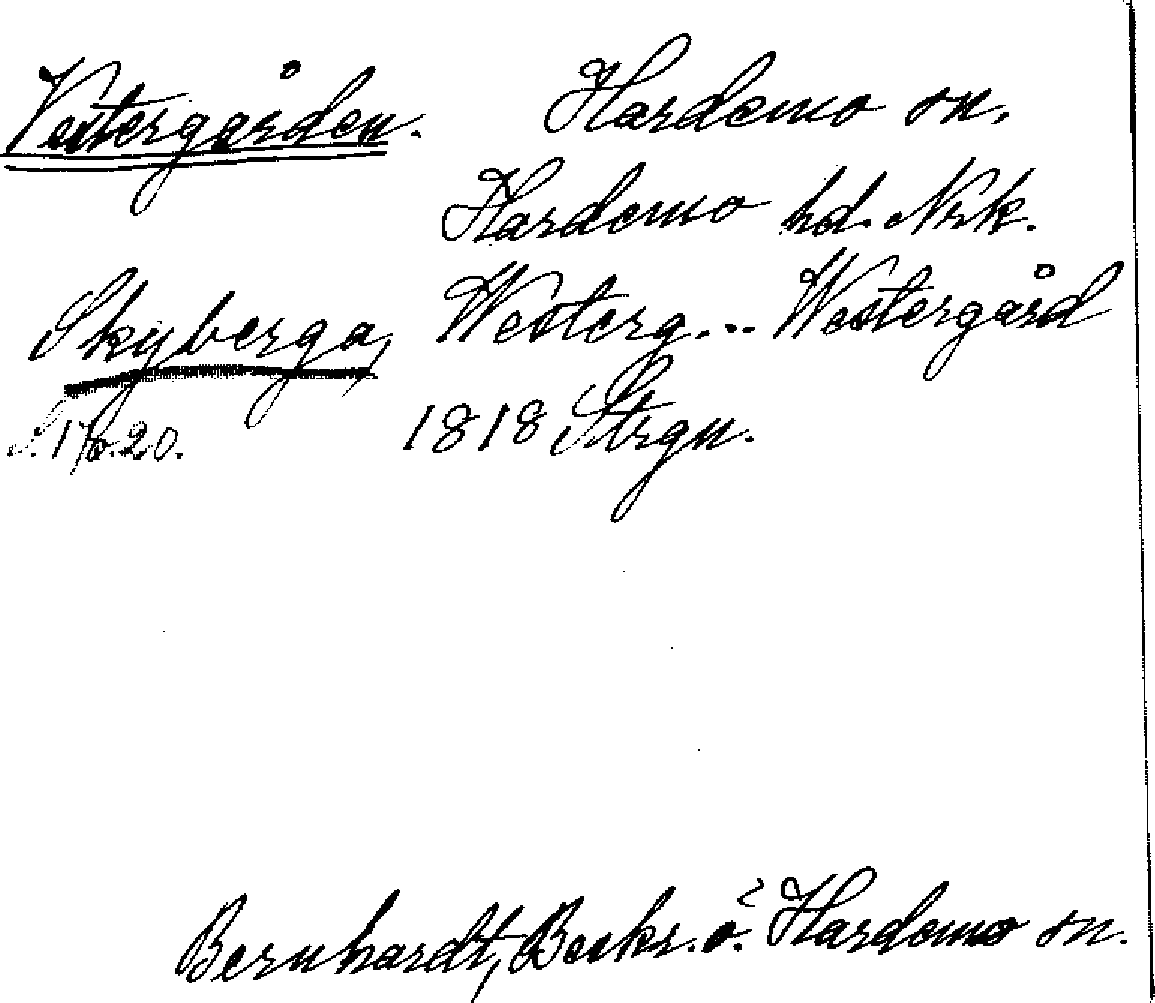 Vestergården. Hardemo sn.
Hardemo hd. Nrk.
Skyberga, Westerg... Westergård
1818 Strgn.
Bernhardt, Beskr. ö. Hardemo sn.